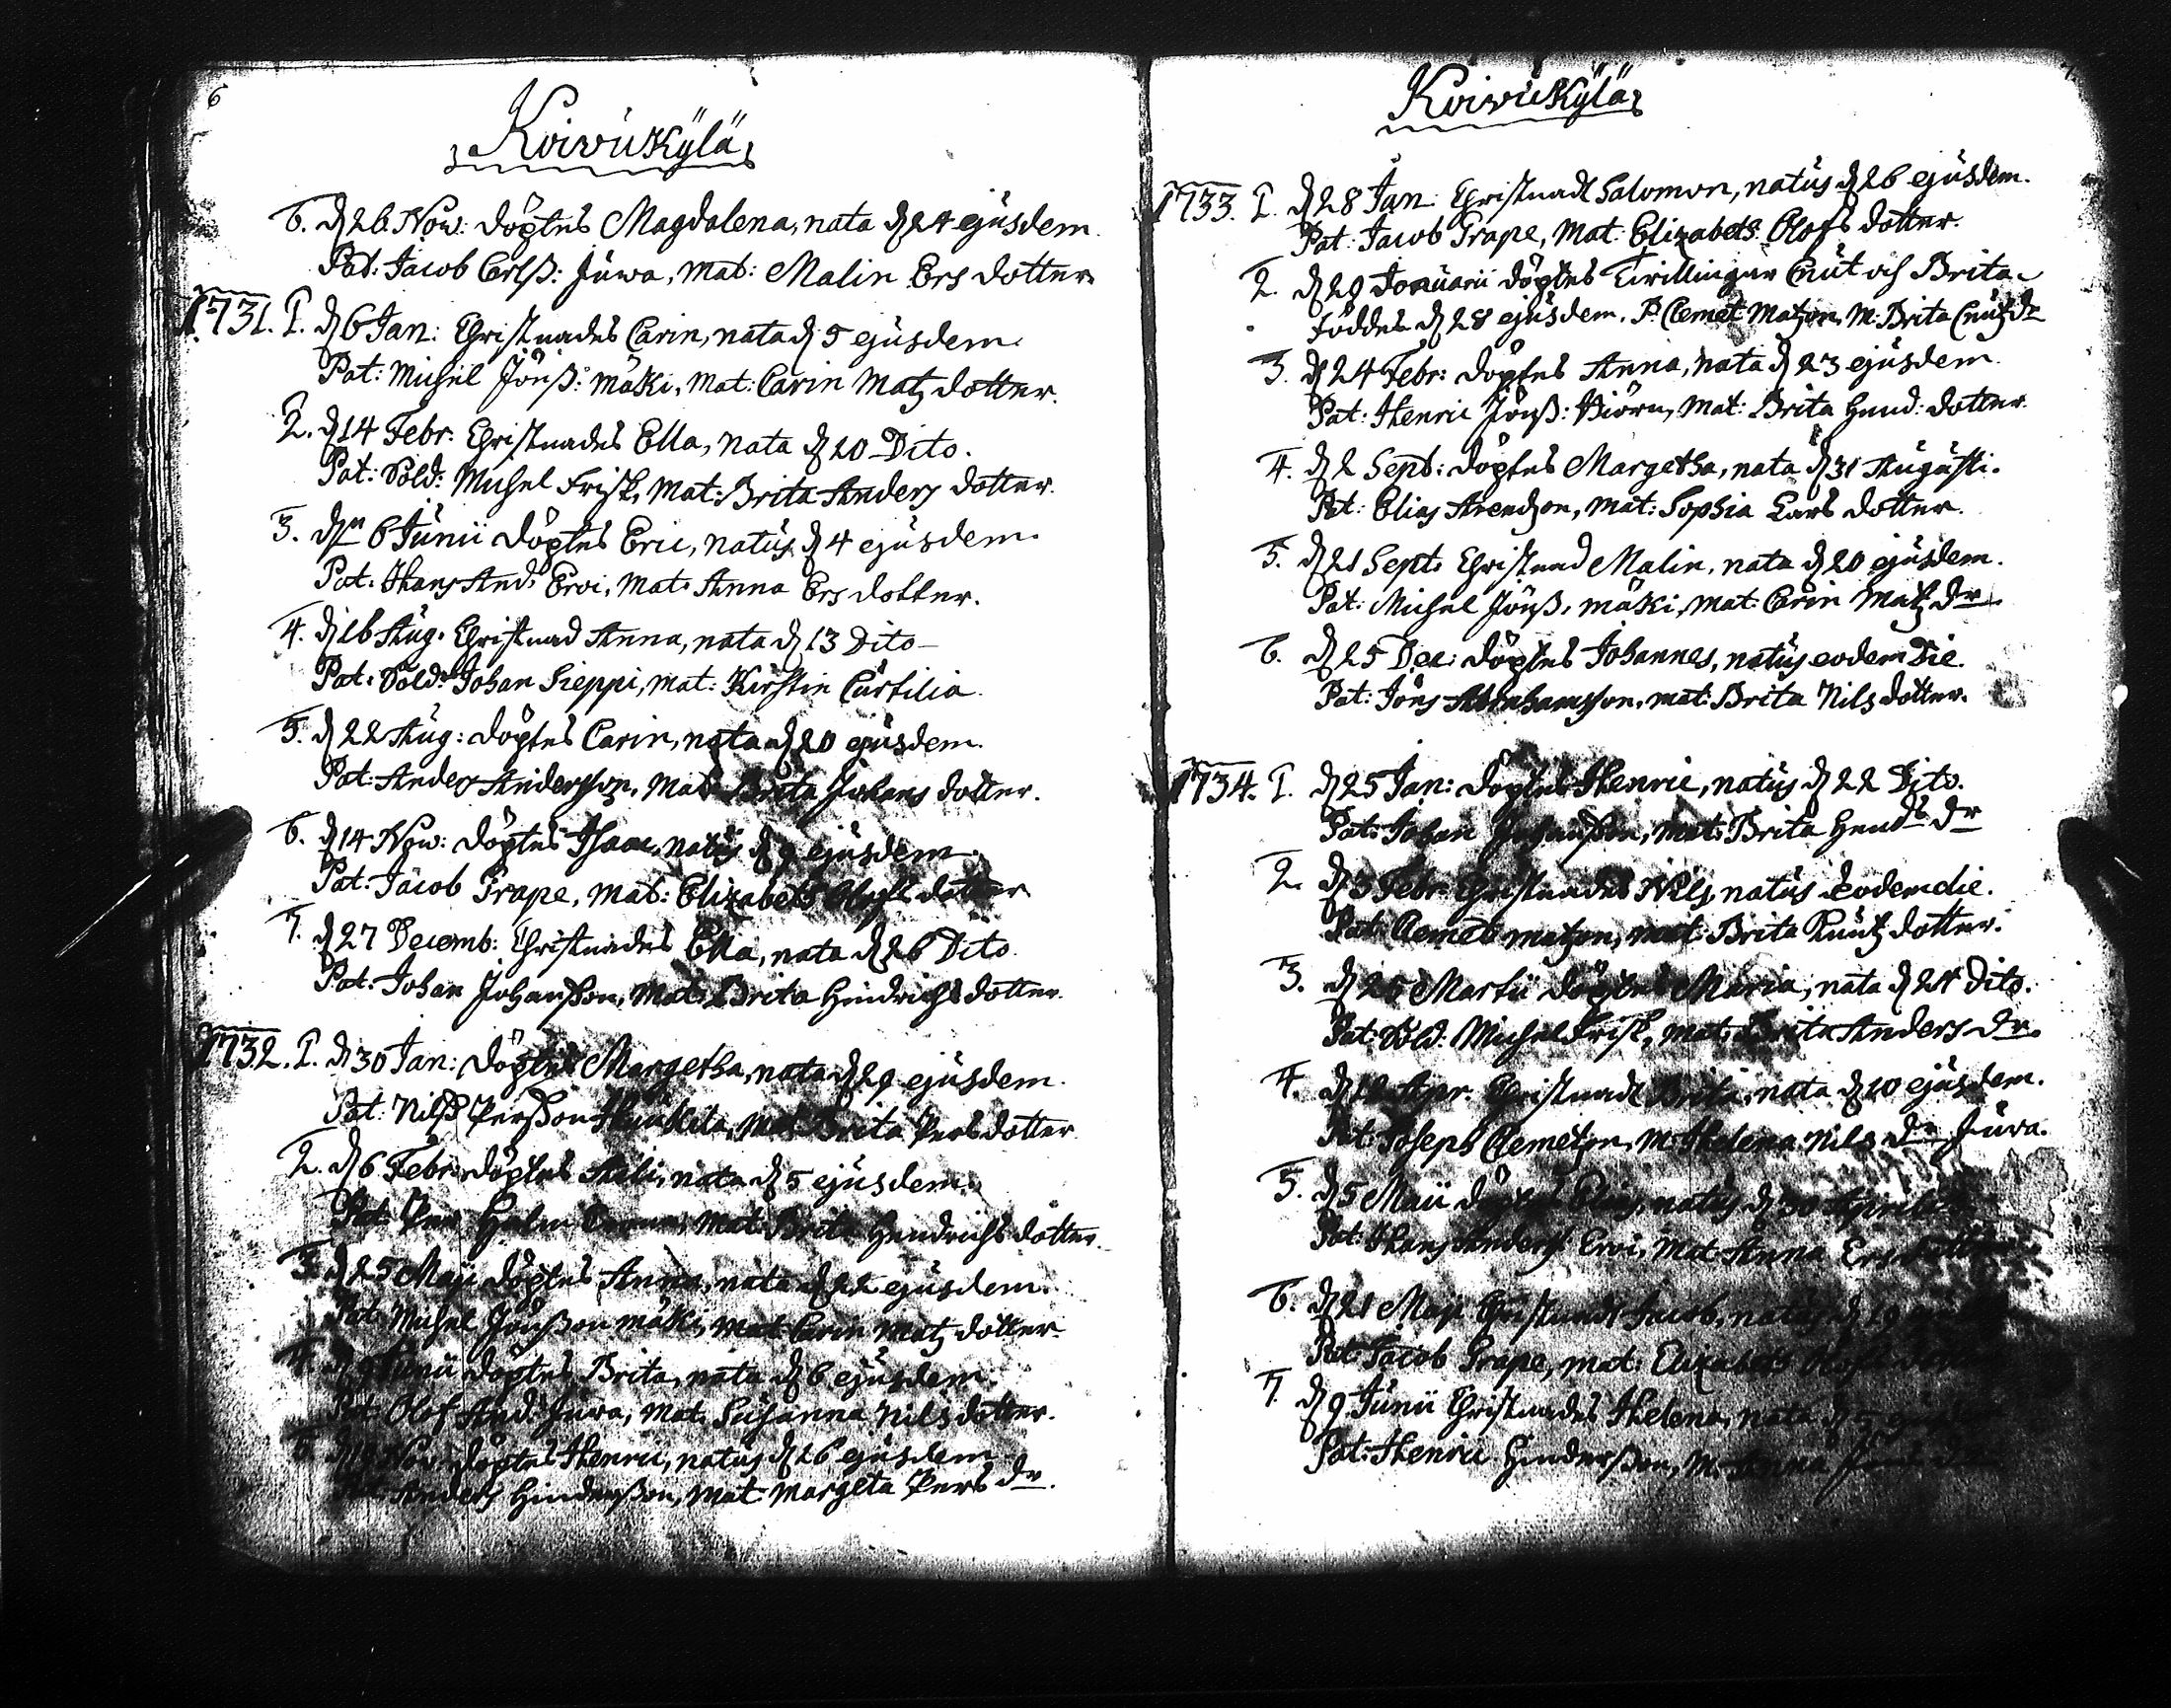 6
Koivukÿlä
6. d. 26. Now: döptes Magdalena, nata d. 24 ejusdem.
Pat: Jacob Carlß: Juwa, mat: Malin Ers dotter
1731. 1. d. 6 Jan: Christnades Carin, nata d. 5 ejusdem.
Pat: Michel Jönß: mäki, Mat: Carin Matz dotter.
2. d. 14 Febr. Christnades Ella, nata d. 10 Dito.
Pat: Sold: Michel Frisk, Mat: Brita Anders dotter.
3. dn 6 Junii döptes Eric, natus d. 4 ejusdem.
Pat: Hans And: Ervi, Mat: Anna Ers dotter.
4. d. 16 Aug. Christnad Anna, nata d. 13 Dito
Pat: Sold: Johan Sieppi, mat: Kirstin Curtilia.
5. d. 22 Aug: döptes Carin, nata d. 20 ejusdem.
Pat: Anders Andersson, Mat: Brita Johans dotter.
6. d. 14 Now: döptes Isaac, natus d. 9 ejusdem.
Pat: Jacob Grape, Mat: Elizabeth Olofs dotter
7. d. 27 Decemb: Christnades Ella, nata d. 26 Dito.
Pat: Johan Johanßon, Mat: Brita Hindrichs dotter.
1732. 1. d. 30 Jan: döptes Margetha, nata d. 29 ejusdem.
Pat: Nilß Perßon Mat Brita Pers dotter
2. d. 6 Febr: döptes nata d. 5 ejusdem.
Pat: Per mat: Brita Hendrichs dotter.
3. d. 25 Maji döptes Anna, nata d. 22 ejusdem.
Pat: Michel Jönßon mäki, mat: Carin Matz dotter.
4. d. 9 Junii döptes Brita, nata d. 6 ejusdem.
Pat: Olof And: Juwa, mat: Susanna Nils dotter.
5. Nov: döptes Henric, natus d. 16 ejusdem
Pat: Anders Hinderßon, Mat: Margeta Pers dr.
Koivukÿlä
1733. 1. d. 28 Jan: Christnad Salomon, natus d. 26 ejusdem.
Pat: Jacob Grape, Mat: Elizabets Olofs dotter.
2. d. 29 Januarii döptes Twillingar Cnut och Brita
föddes d. 28 ejusdem. P. Clemet Matzon, M: Brita Cnutz dr
3. d. 24 Febr: döptes Anna, nata d. 23 ejusdem.
Pat: Henric Jönß: Biörn, Mat: Brita Hend: dotter.
4. d. 2 Sept: döptes Margetha, nata d. 31 Augusti.
Pat: Elias Arendzon, Mat: Sophia Lars dotter.
5. d. 21 Sept: Christnad Malin, nata d. 20 ejusdem.
Pat: Michel Jönß: mäki, mat: Carin Matz dr
6. d. 25 Dec: döptes Johannes, natus eodem Die.
Pat: Jöns Abrahamsson, mat: Brita Nils dotter.
1734. 1. d. 25 Jan: döptes Henric, natus d. 22 Dito.
Pat: Johan Johanßon, Mat: Brita Hends dr
2. d. 3 Febr: Christnades Nils, natus eodem die.
Pat: Clemet matzon, mat: Brita Knutz dotter.
3. d. 25 Martii döptes Maria, nata d. 24 Dito.
Pat: Sold: Michel Frisk, Mat: Brita Anders dr.
4. d. 12 Apr. Christnad Brita, nata d. 10 ejusdem.
Pat: Joseph Clemetzon, M: Helena Nils dr Juwa.
5. d. 5 Maii döptes natus d. 30 Aprilis
Pat: Hans Anderß Ervi, Mat: Anna Ers dotter.
6. d. 21 Maji Christnad Jacob, natus d. 19
Pat: Jacob Grape, mat: Elizabets Olofs
7. d. 9 Junii Christnades Helena, nata d. 5
Pat: Henric Hinderßon, M: Anna